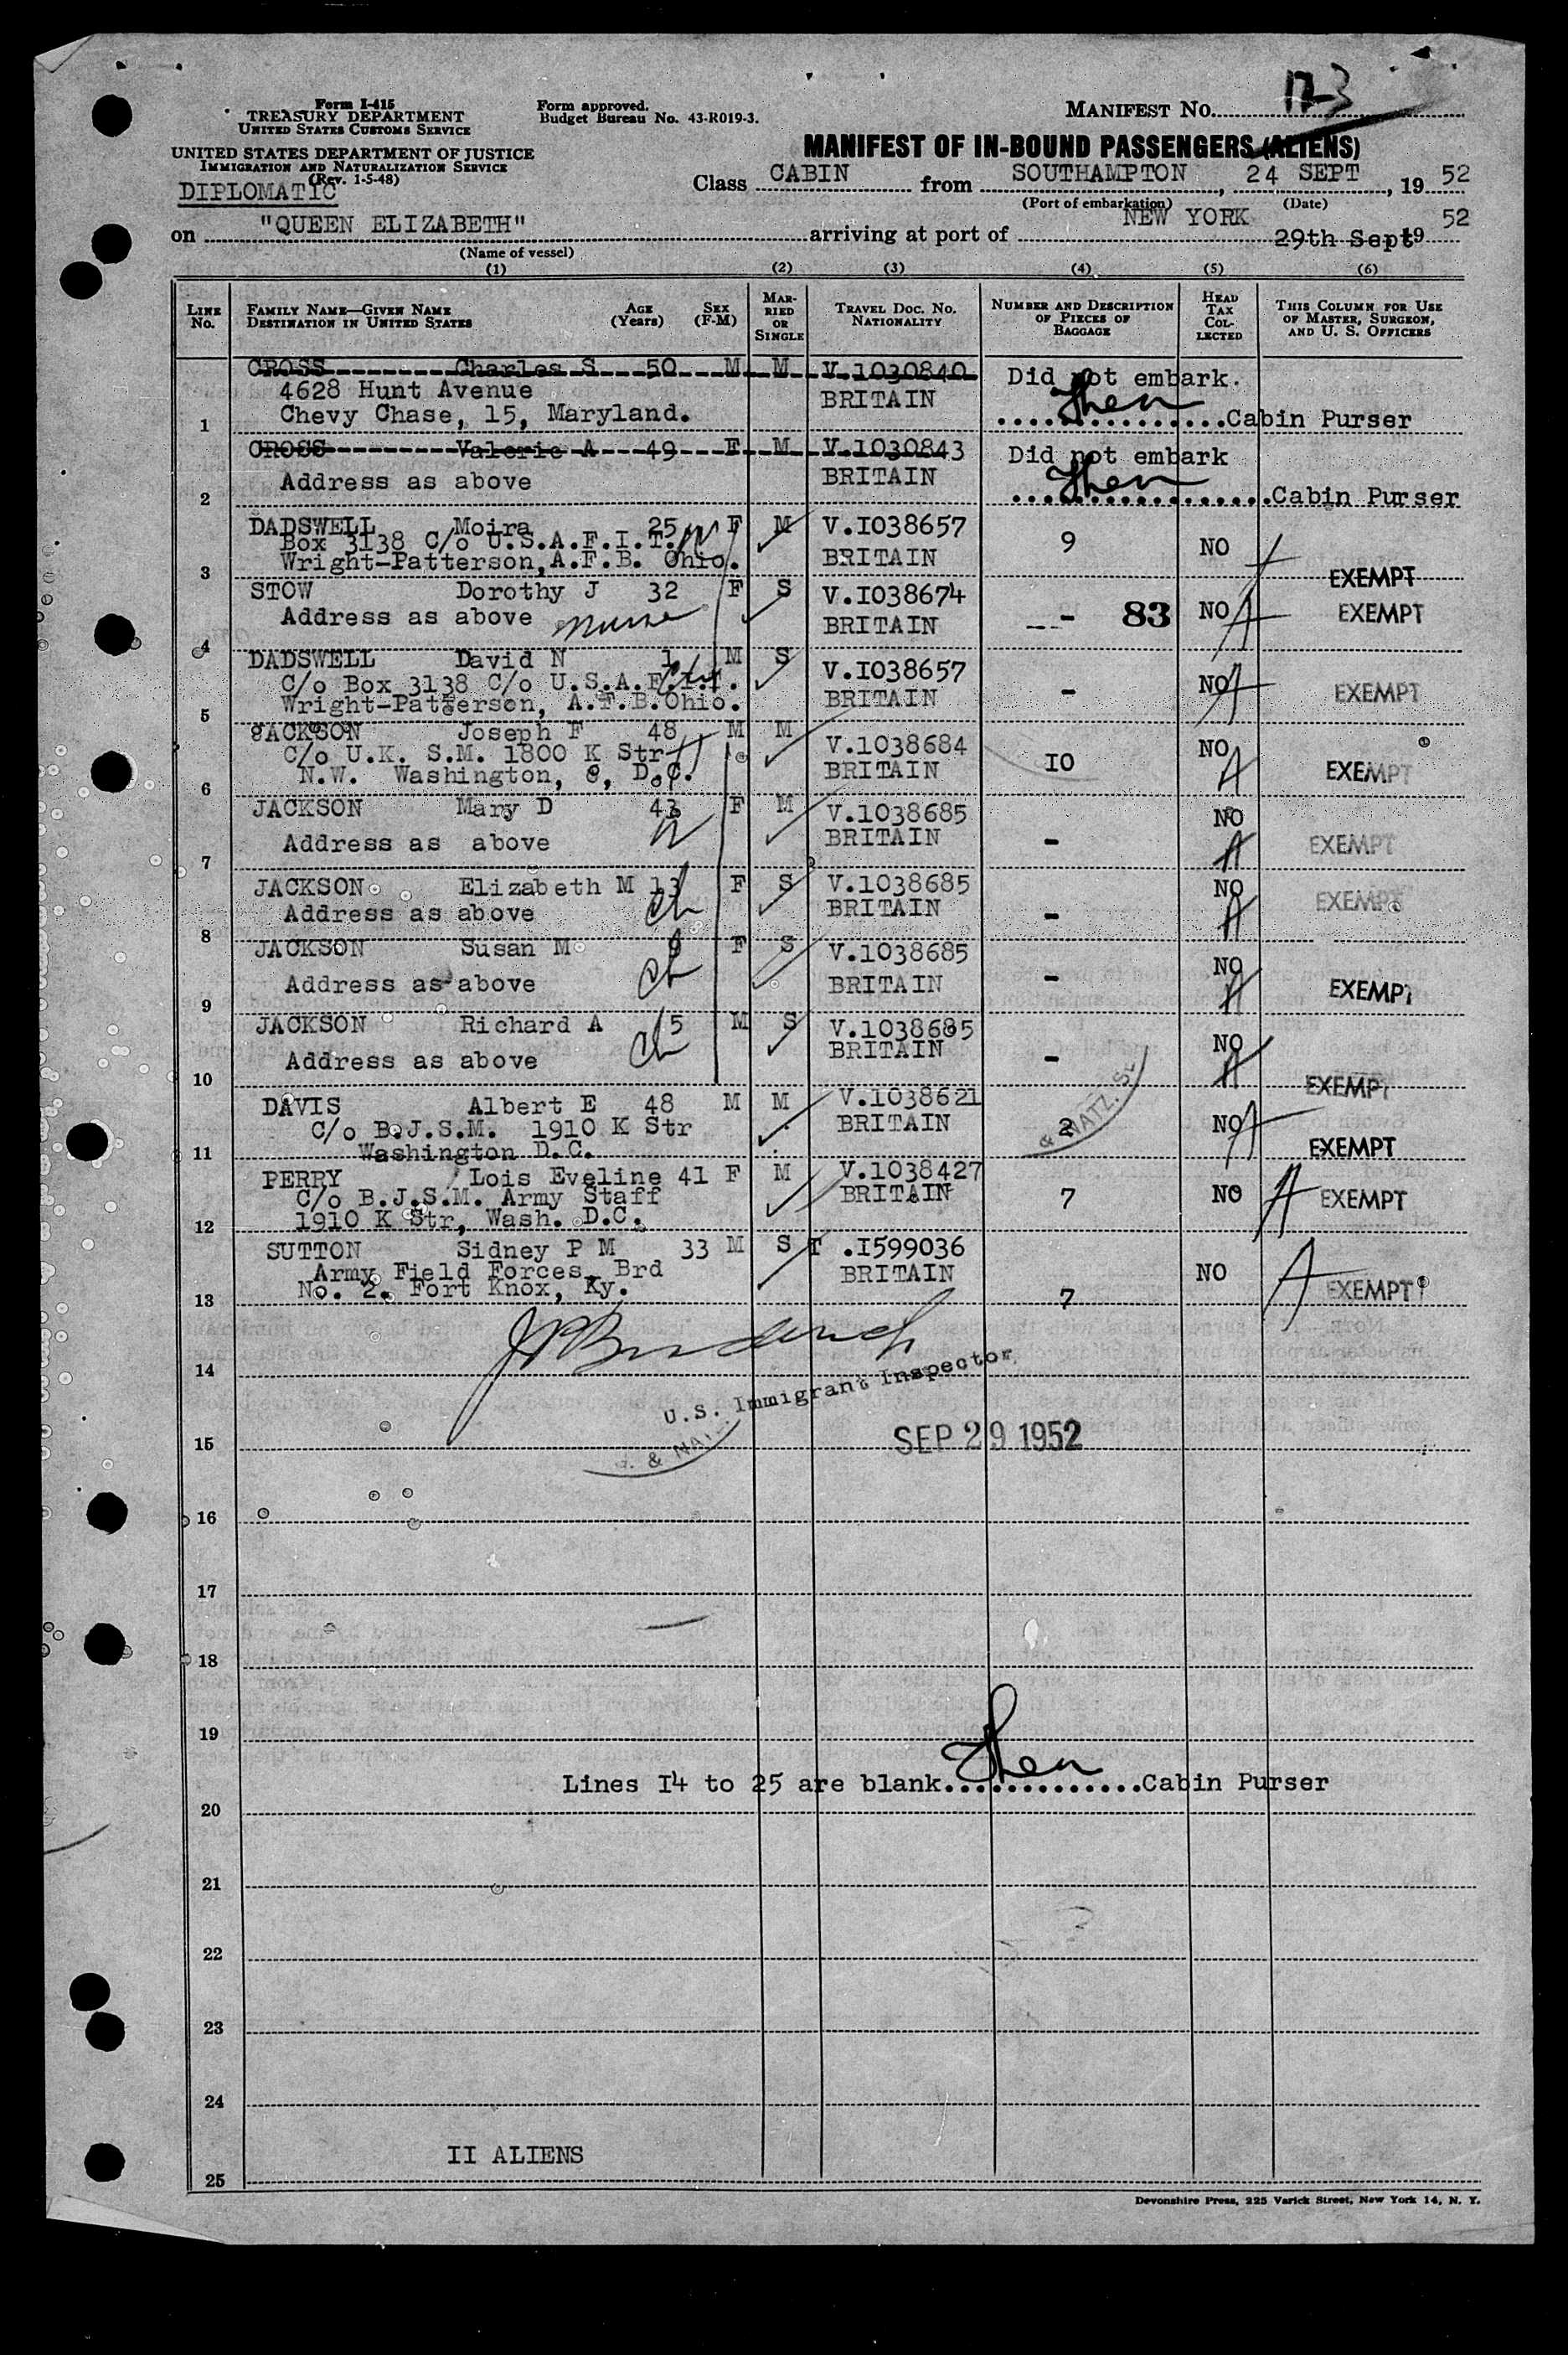 Form I-415
TREASURY DEPARTMENT
UNITED STATES CUSTOMS SERVICE
Form approved.
Budget Bureau No. 43-R019-3.
MANIFEST No. 123
UNITED STATES DEPARTMENT OF JUSTICE
IMMIGRATION AND NATURALIZATION SERVICE
(Rev. 1-5-48)
DIPLOMATIC
MANIFEST OF IN-BOUND PASSENGERS (ALIENS)
Class CABIN from SOUTHAMPTON, 24 SEPT, 19 52
(Port of embarkation) (Date)
on "QUEEN ELIZABETH" arriving at port of NEW YORK 29th Sept 19 52
(Name of vessel)
(1) (2) (3) (4) (5) (6)
LINE No. FAMILY NAME—GIVEN NAME DESTINATION IN UNITED STATES AGE (Years) SEX (F-M) MARRIED OR SINGLE TRAVEL DOC. NO. NATIONALITY NUMBER AND DESCRIPTION OF PIECES OF BAGGAGE HEAD TAX COLLECTED THIS COLUMN FOR USE OF MASTER, SURGEON, AND U. S. OFFICERS
CROSS Charles S 50 M M V.1030840 Did not embark.
4628 Hunt Avenue BRITAIN
1 Chevy Chase, 15, Maryland. Cabin Purser
CROSS Valerie A 49 F M V.1030843 Did not embark
Address as above BRITAIN
2 Cabin Purser
DADSWELL Moira 25 F M V.I038657 9 NO
Box 3138 C/o U.S.A.F.I.T.
3 Wright-Patterson, A.F.B. Ohio. BRITAIN EXEMPT
STOW Dorothy J 32 F S V.I038674 - 83 NO EXEMPT
4 Address as above nurse BRITAIN
DADSWELL David N 1 M S V.I038657 - NO EXEMPT
C/o Box 3138 C/o U.S.A.F.I.T. ch
5 Wright-Patterson, A.F.B.Ohio. BRITAIN
JACKSON Joseph F 48 M M V.1038684 IO NO EXEMPT
C/o U.K. S.M. 1800 K Str
6 N.W. Washington, 8, D.C. BRITAIN
JACKSON Mary D 43 F M V.1038685 - NO EXEMPT
7 Address as above BRITAIN
JACKSON Elizabeth M 13 F S V.1038685 - NO EXEMPT
8 Address as above ch BRITAIN
JACKSON Susan M F S V.1038685 - NO EXEMPT
9 Address as above ch BRITAIN
JACKSON Richard A 5 M S V.1038685 - NO EXEMPT
10 Address as above ch BRITAIN
DAVIS Albert E 48 M M V.1038621 2 NO EXEMPT
C/o B.J.S.M. 1910 K Str BRITAIN
11 Washington D.C.
& NATZ. SE
PERRY Lois Eveline 41 F M V.1038427 7 NO EXEMPT
C/o B.J.S.M. Army Staff BRITAIN
12 1910 K Str, Wash. D.C.
SUTTON Sidney P M 33 M S T .I599036 7 NO EXEMPT
Army Field Forces, Brd BRITAIN
13 No. 2. Fort Knox, Ky.
14
U.S. Immigrant Inspector
& NAT
15 SEP 29 1952
16
17
18
19
Lines I4 to 25 are blank Cabin Purser
20
21
22
23
24
II ALIENS
25
Devonshire Press, 225 Varick Street, New York 14, N. Y.